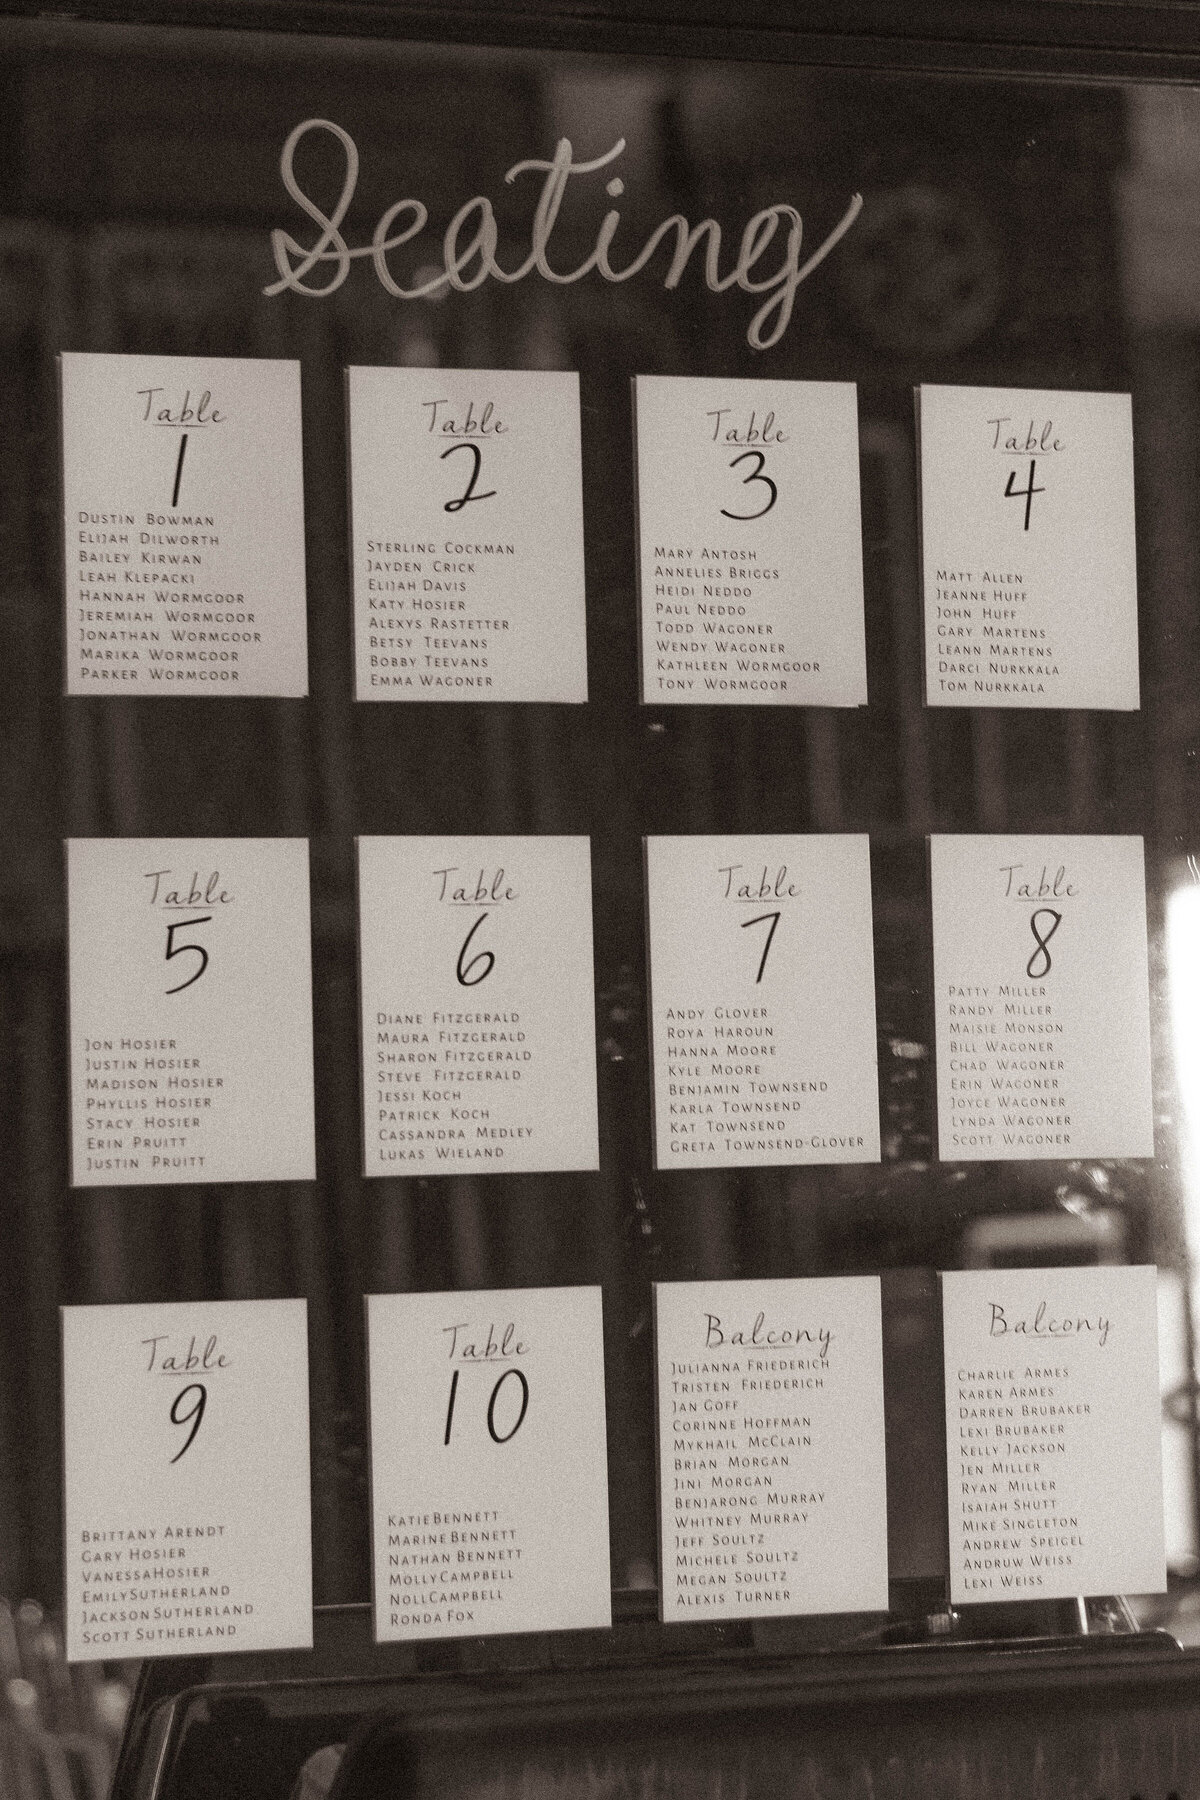 Seating
Table
1
DUSTIN BOWMAN
ELIJAH DILWORTH
BAILEY KIRWAN
LEAH KLEPACKI
HANNAH WORMGOOR
JEREMIAH WORMGOOR
JONATHAN WORMGOOR
MARIKA WORMGOOR
PARKER WORMGOOR
Table
2
STERLING COCKMAN
JAYDEN CRICK
ELIJAH DAVIS
KATY HOSIER
ALEXYS RASTETTER
BETSY TEEVANS
BOBBY TEEVANS
EMMA WAGONER
Table
3
MARY ANTOSH
ANNELIES BRIGGS
HEIDI NEDDO
PAUL NEDDO
TODD WAGONER
WENDY WAGONER
KATHLEEN WORMGOOR
TONY WORMGOOR
Table
4
MATT ALLEN
JEANNE HUFF
JOHN HUFF
GARY MARTENS
LEANN MARTENS
DARCI NURKKALA
TOM NURKKALA
Table
5
JON HOSIER
JUSTIN HOSIER
MADISON HOSIER
PHYLLIS HOSIER
STACY HOSIER
ERIN PRUITT
JUSTIN PRUITT
Table
6
DIANE FITZGERALD
MAURA FITZGERALD
SHARON FITZGERALD
STEVE FITZGERALD
JESSI KOCH
PATRICK KOCH
CASSANDRA MEDLEY
LUKAS WIELAND
Table
7
ANDY GLOVER
ROYA HAROUN
HANNA MOORE
KYLE MOORE
BENJAMIN TOWNSEND
KARLA TOWNSEND
KAT TOWNSEND
GRETA TOWNSEND-GLOVER
Table
8
PATTY MILLER
RANDY MILLER
MAISIE MONSON
BILL WAGONER
CHAD WAGONER
ERIN WAGONER
JOYCE WAGONER
LYNDA WAGONER
SCOTT WAGONER
Table
9
BRITTANY ARENDT
GARY HOSIER
VANESSA HOSIER
EMILY SUTHERLAND
JACKSON SUTHERLAND
SCOTT SUTHERLAND
Table
10
KATIE BENNETT
MARINE BENNETT
NATHAN BENNETT
MOLLY CAMPBELL
NOLL CAMPBELL
RONDA FOX
Balcony
JULIANNA FRIEDERICH
TRISTEN FRIEDERICH
JAN GOFF
CORINNE HOFFMAN
MYKHAIL MCCLAIN
BRIAN MORGAN
JINI MORGAN
BENJARONG MURRAY
WHITNEY MURRAY
JEFF SOULTZ
MICHELE SOULTZ
MEGAN SOULTZ
ALEXIS TURNER
Balcony
CHARLIE ARMES
KAREN ARMES
DARREN BRUBAKER
LEXI BRUBAKER
KELLY JACKSON
JEN MILLER
RYAN MILLER
ISAIAH SHUTT
MIKE SINGLETON
ANDREW SPEIGEL
ANDRUW WEISS
LEXI WEISS